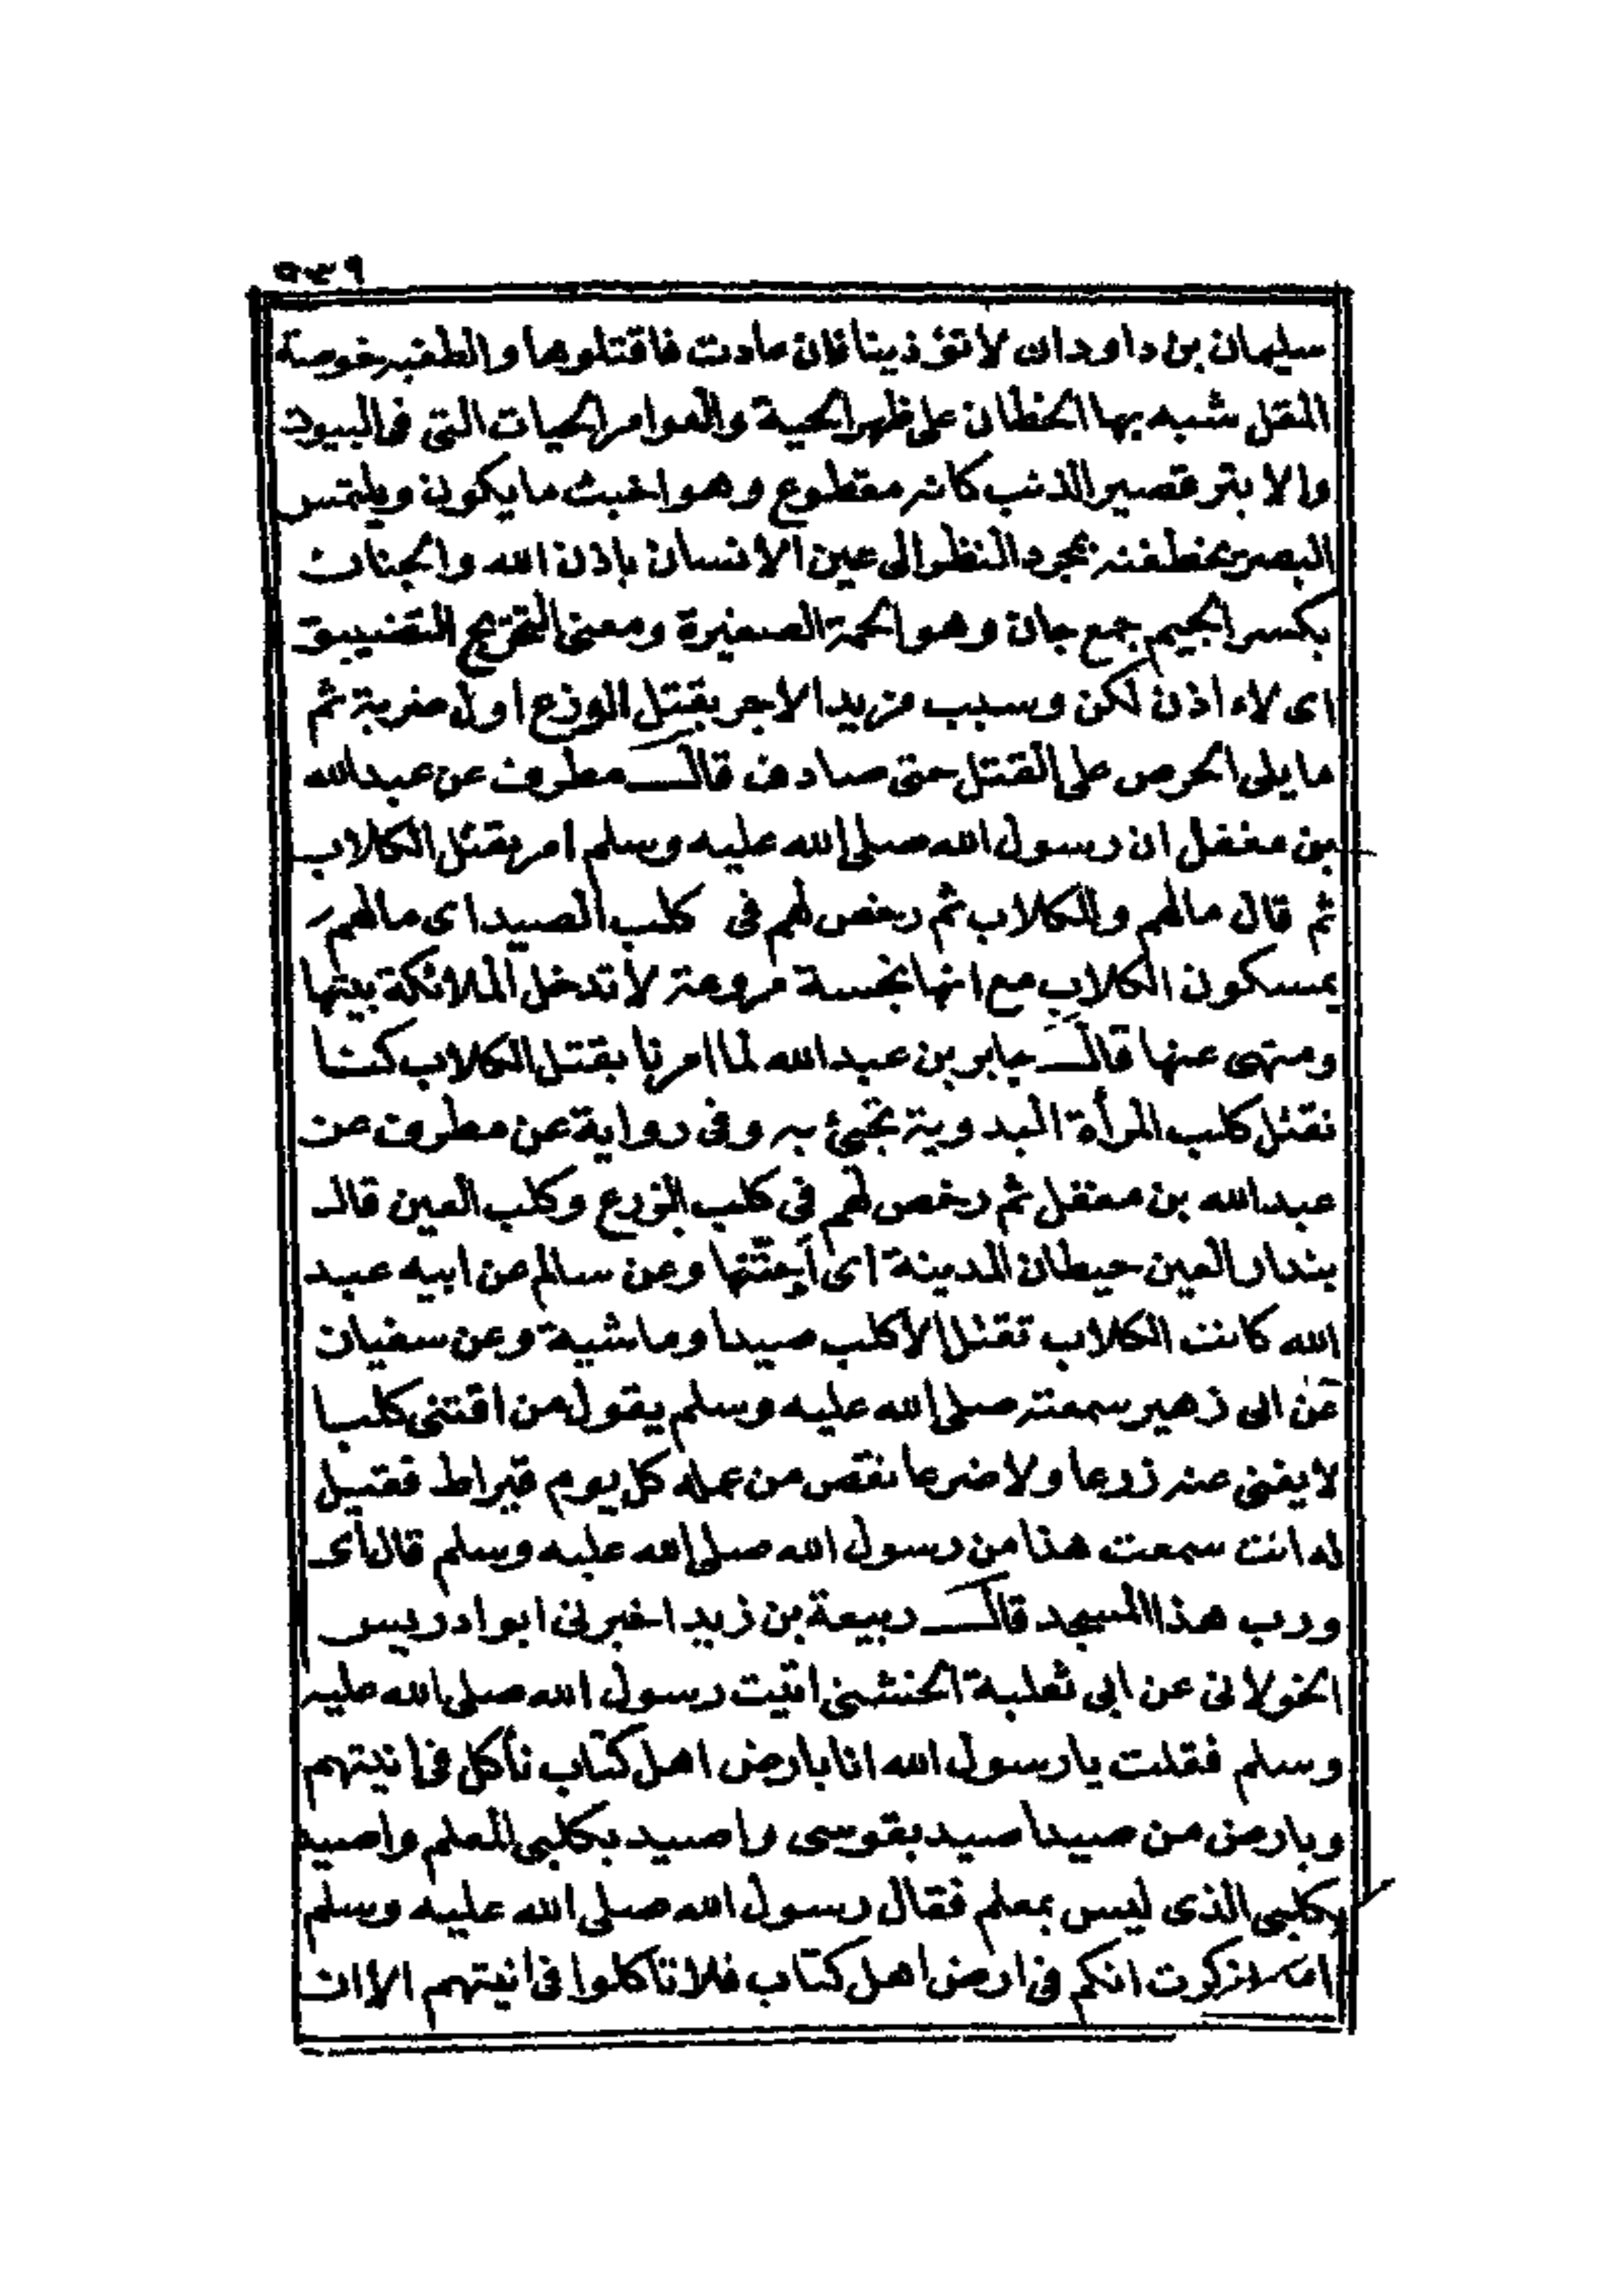 ٥٣٩
سليمان بن داود ان لا تؤذينا فان عادت فاقتلوها والطفيه خوصة
المقل شبه بها الخطان على ظهر الحية والعوامر الحيات التي في البيوت
والابتر قصير الذنب كانه مقطوع وهو اخبث ما يكون ويلتمس
البصر يخطفنه بمجرد النظر الى عين الانسان باذن الله والجنان
بكسر الجيم جمع جان وهو الحية الصغيرة ومعنى التحريج التضييق
اى لاء اذن لكن وسبب مزيد الاجر بقتل الوزع اول ضربة ثم
ما يلى الحرص على القتل حتى صادف قال مطرف عن عبد الله
بن مغفل ان رسول الله صلى الله عليه وسلم امر بقتل الكلاب
ثم قال مالهم والكلاب ثم رخص لهم فى كلب الصيد اى مالهم
يمسكون الكلاب مع انها نجسة مروعة لا تدخل الملائكة بيتها
ومنهى عنها قال جابر بن عبد الله لما امرنا بقتل الكلاب كنا
نقتل كلب المرأة البدوية تجئ به وفى رواية عن مطرف عن
عبد الله بن مغفل ثم رخص لهم فى كلب الزرع وكلب العين قال
بندار العين حيطان المدينة اى أجنتها وعن سالم عن ابيه عبد
الله كانت الكلاب تقتل الا كلب صيد او ماشية وعن سفيان
عن ابى زهير سمعته صلى الله عليه وسلم يقول من اقتنى كلبا
لا يغنى عنه زرعا ولا ضرعا نقص من عمله كل يوم قيراط فقيل
له انت سمعت هذا من رسول الله صلى الله عليه وسلم قال اى
ورب هذا المسجد قال ربيعة بن زيد اخبرنى ابو ادريس
الخولانى عن ابى ثعلبة الخشنى اتيت رسول الله صلى الله عليه
وسلم فقلت يا رسول الله انا بارض اهل كتاب نأكل فى انيتهم
وبارض من صيد اصيد بقوسى واصيد بكلبى المعلم واصيد
بكلبى الذى ليس بمعلم فقال رسول الله صلى الله عليه وسلم
ذكرت انكم فى ارض اهل كتاب فلا تاكلوا فى انيتهم الا ان